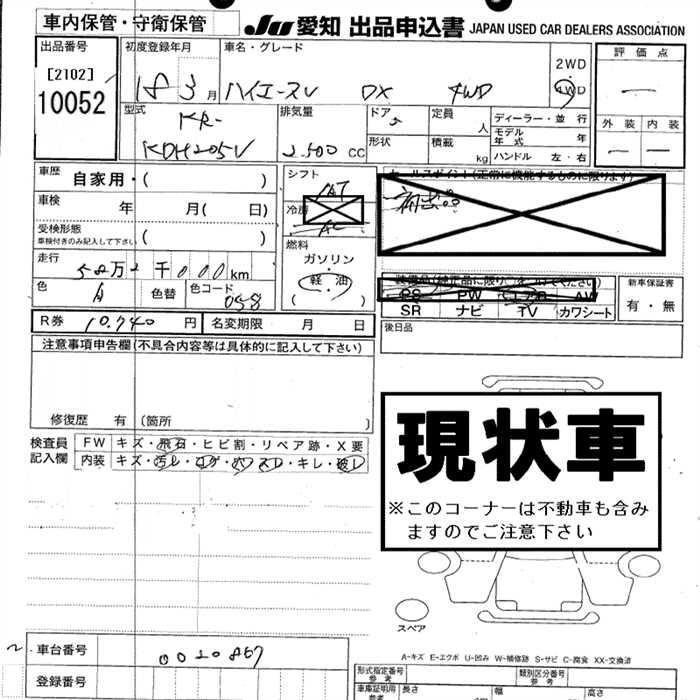 車内保管・守衛保管
JU 愛知 出品申込書 JAPAN USED CAR DEALERS ASSOCIATION
出品番号
[2102]
10052
初度登録年月
18 3月
車名・グレード
ハイエースV DX 4WD
2WD
4WD
評価点
型式
KR-
KDH205V
排気量
2.500 CC
ドア
5
形状
定員
人
積載
kg
ディーラー・並 行
モデル年式 年
ハンドル 左・右
外装 内装
車歴 自家用・( )
車検 年 月( 日)
受検形態
車検付きのみ記入して下さい ( )
走行 58万2千000km
色 白 色替 色コード 058
シフト
AT
冷房
AC
燃料
ガソリン
・
軽・油
( )
セールスポイント(正常に機能するものに限ります)
初出品
PS PW エアB AW
SR ナビ TV カワシート
新車保証書
有・無
R券 10.740 円 名変期限 月 日
後日品
注意事項申告欄(不具合内容等は具体的に記入して下さい)
修復歴 有 〔箇所 〕
検査員記入欄
FW キズ・飛石・ヒビ割・リペア跡・X要
内装 キズ・汚レ・コゲ・穴・スレ・キレ・破レ
現状車
※このコーナーは不動車も含み
ますのでご注意下さい
スペア
A-キズ E-エクボ U-凹み W-補修跡 S-サビ C-腐食 XX-交換済
車台番号 0020867
登録番号
形式指定番号
参考
類別区分番号
参考
車庫証明用
参考
長さ 幅 高さ